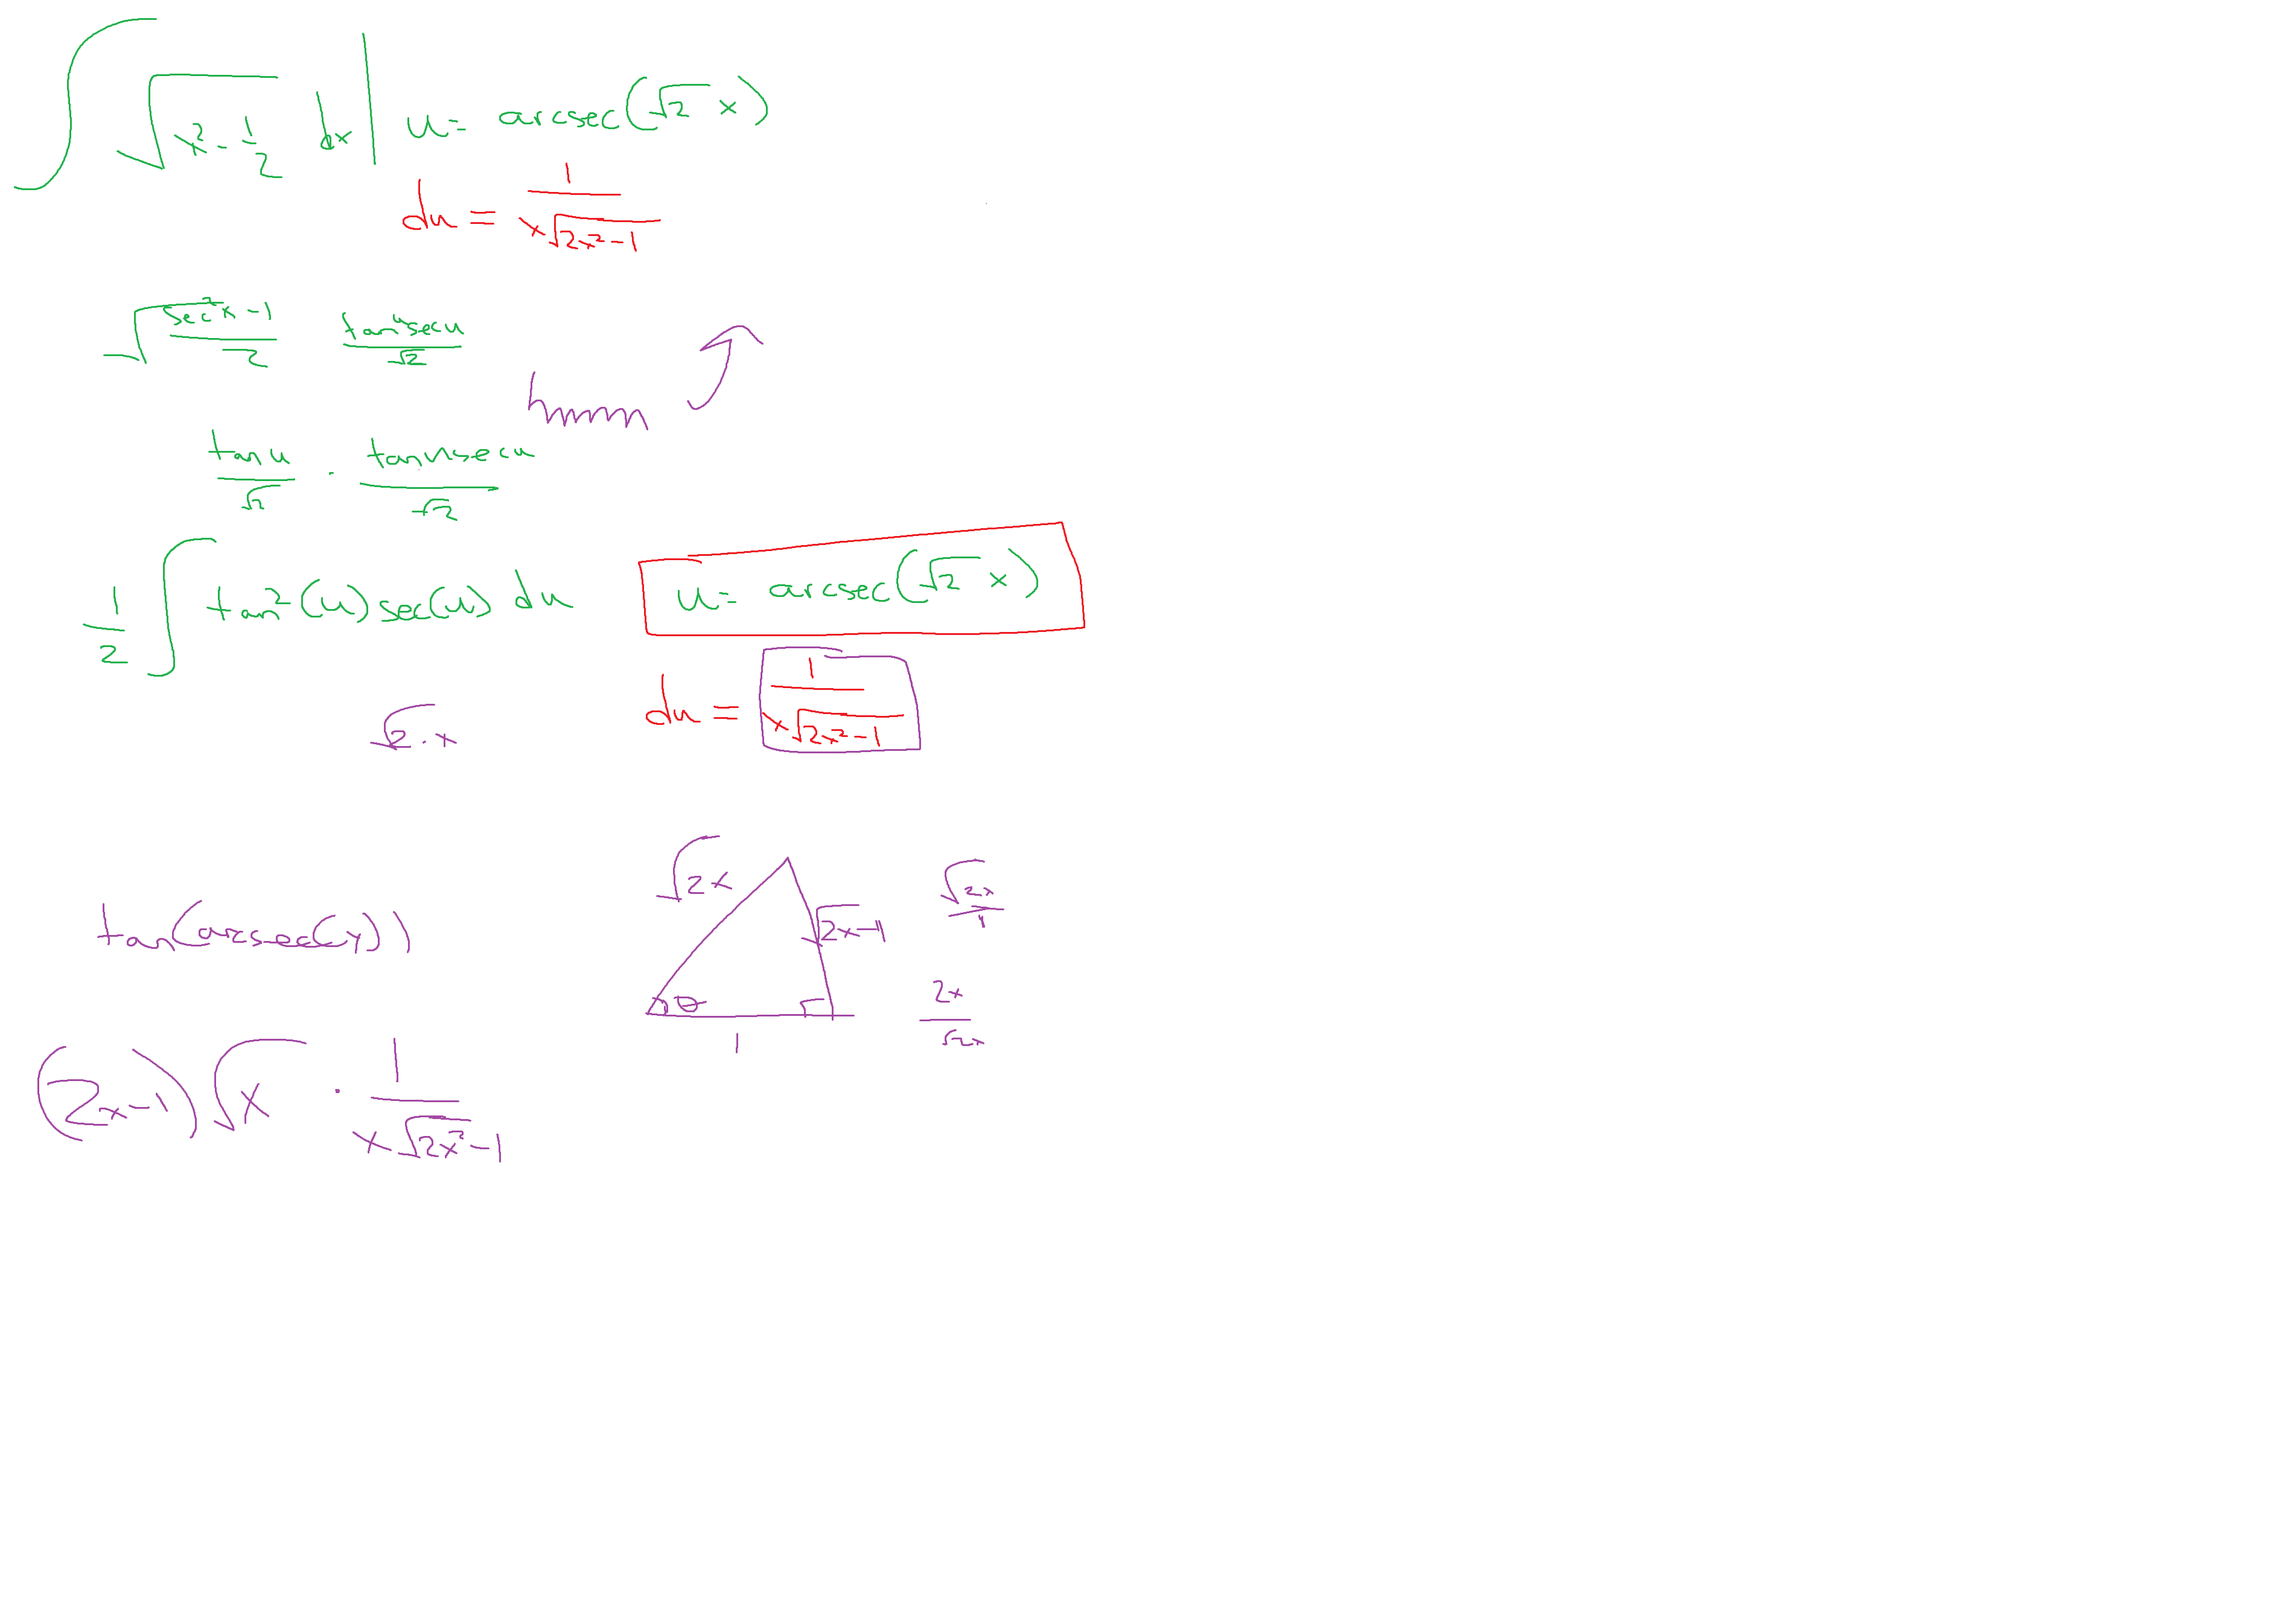 ∫ √(x² - 1/2) dx | u = arcsec(√2 x)
du = 1/(x√(2x²-1))
√((sec²x-1)/2) (tan u sec u)/√2
hmmm
(tan u)/√2 · (tan u sec u)/√2
1/2 ∫ tan²(u) sec(u) du u = arcsec(√2 x)
du = 1/(x√(2x²-1))
√2 · x
√2x √(2x-1) √2x/1
tan(arcsec(y))
θ 1 2x/√2x
(2x-1)√x · 1/(x√(2x²-1))